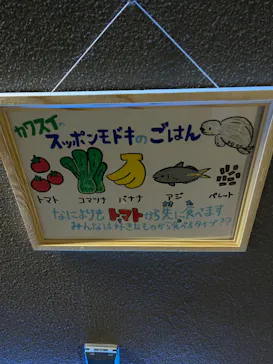 カワスイの
スッポンモドキのごはん
トマト コマツナ バナナ アジ ペレット
なによりも トマトから先に食べます
みんなは好きなものから食べるタイプ??